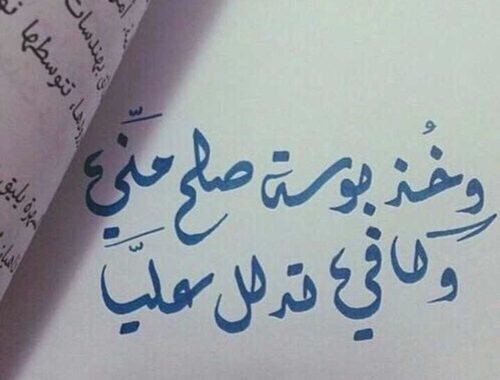 وخُذ بوسة صلح منّي
وكافي تدلل عليَّا
بهندسات
تتوسطها